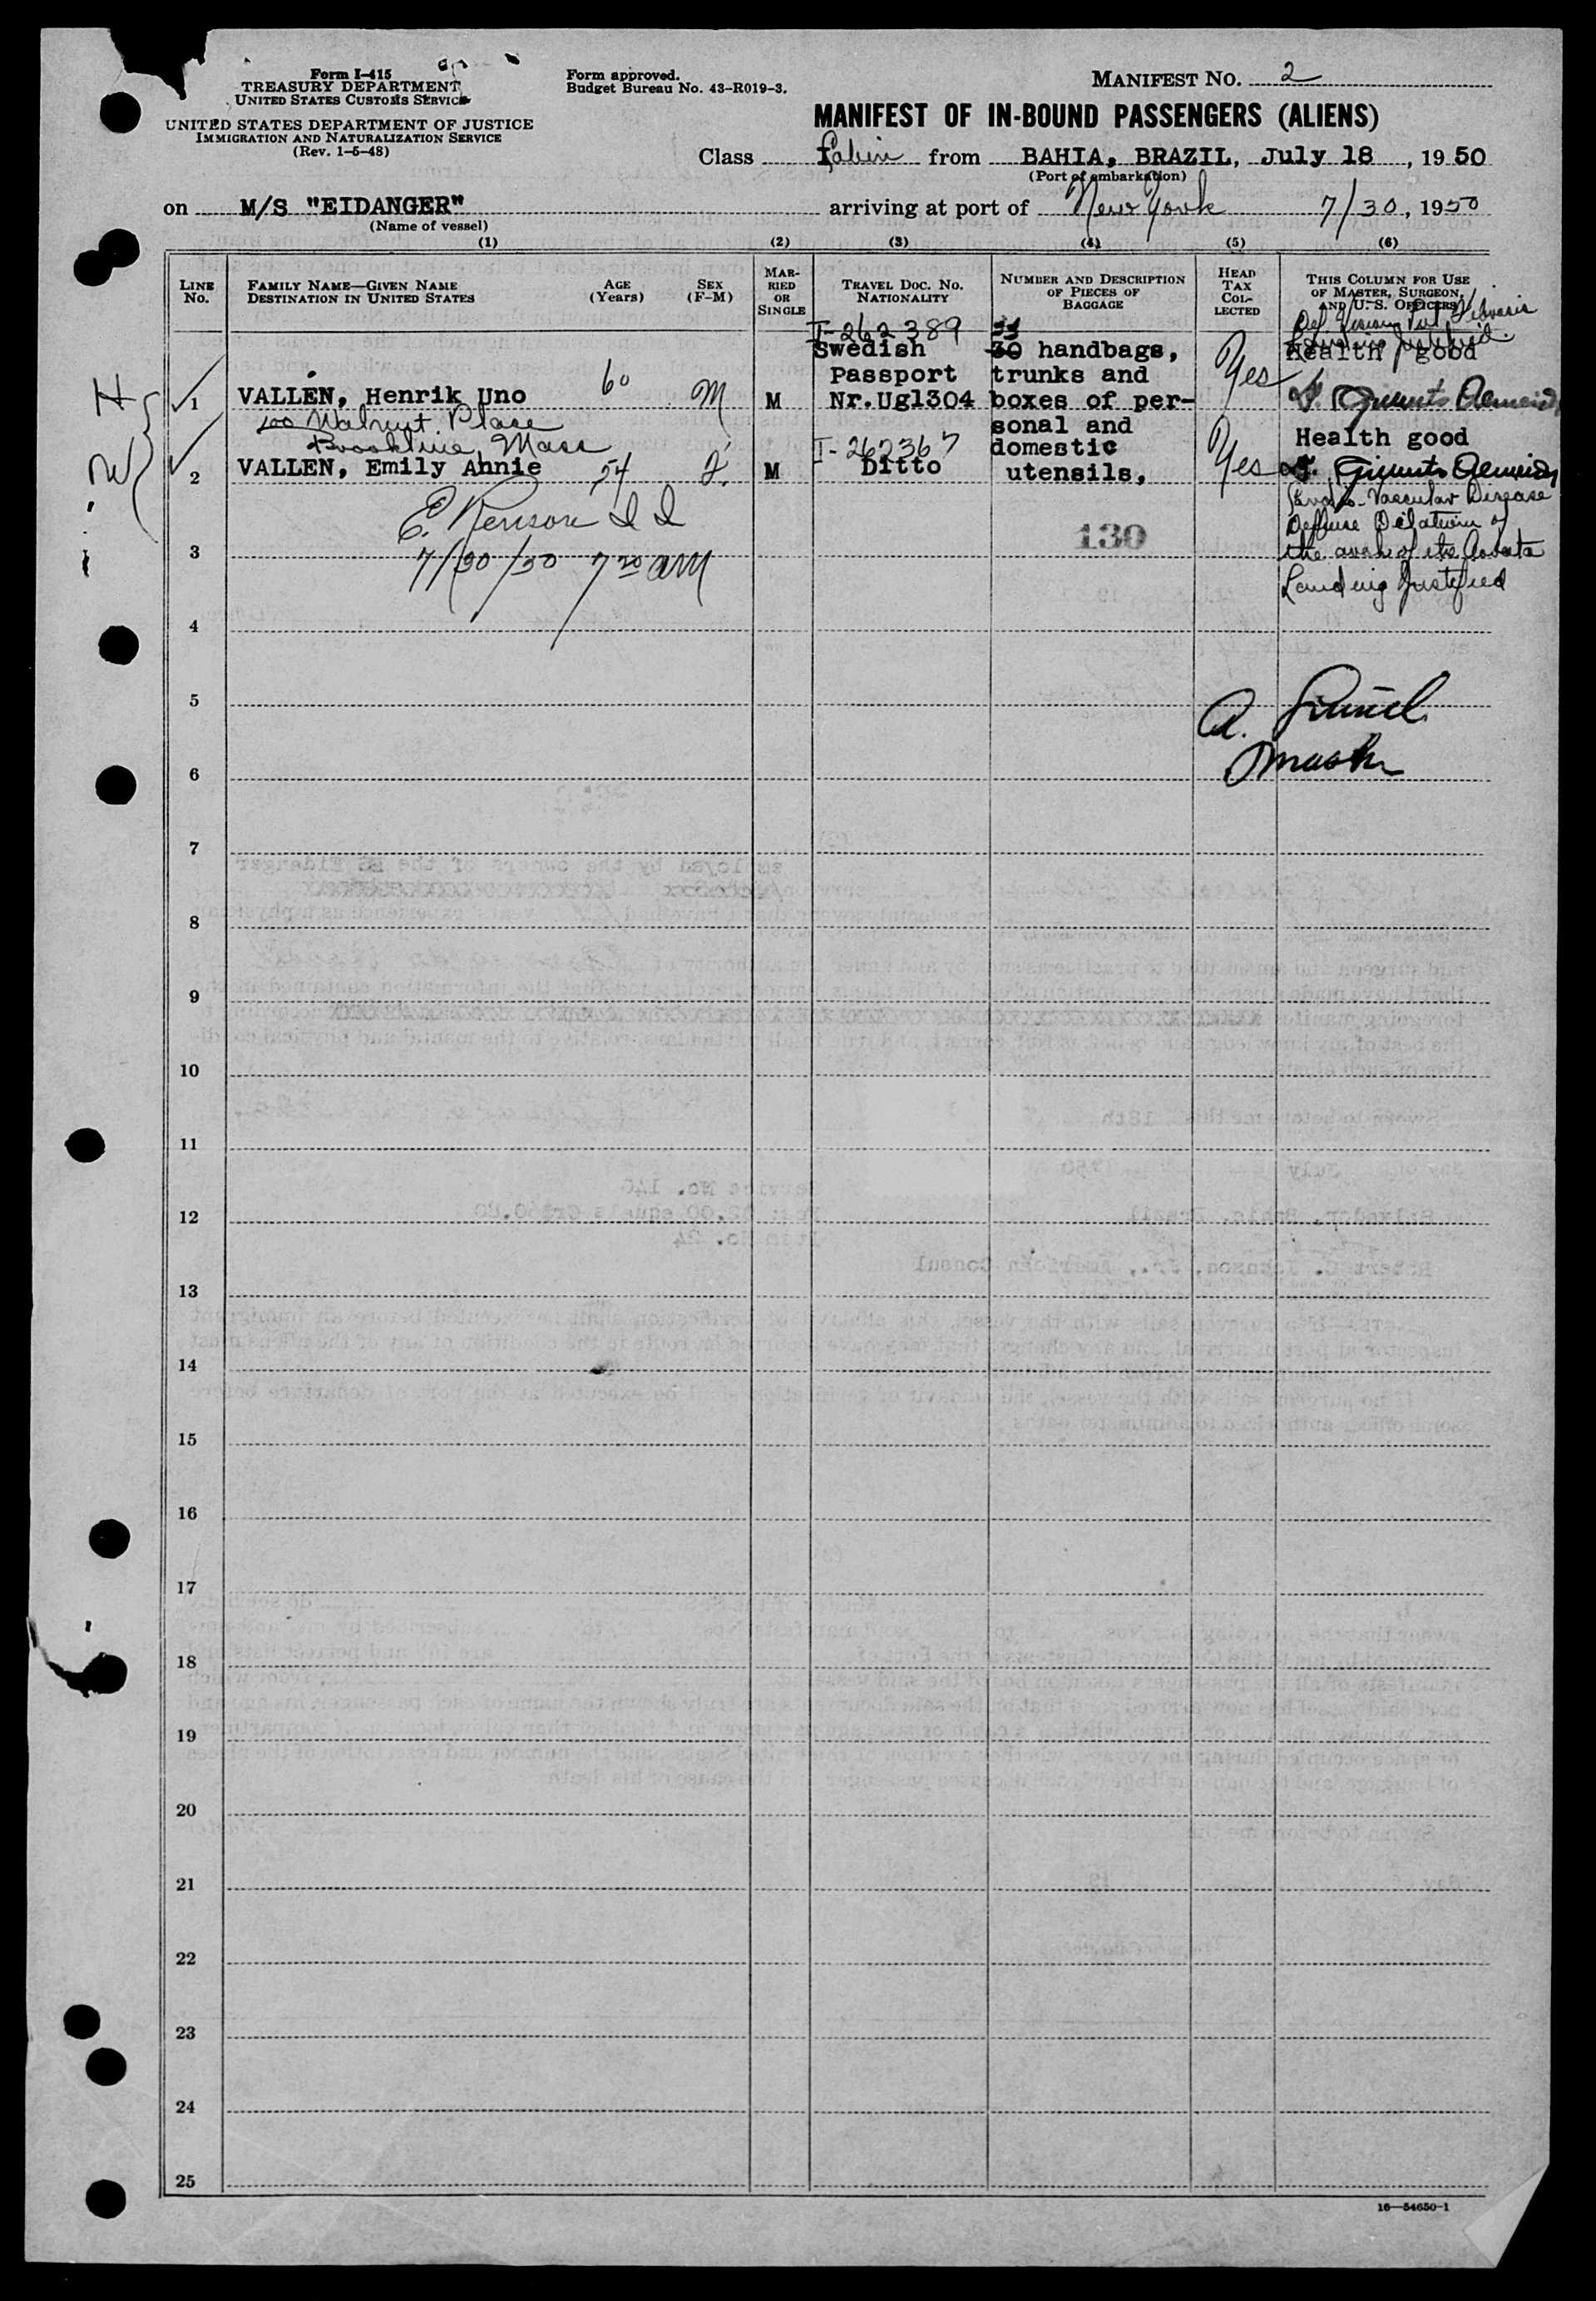 Form I-415
TREASURY DEPARTMENT
UNITED STATES CUSTOMS SERVICE
UNITED STATES DEPARTMENT OF JUSTICE
IMMIGRATION AND NATURALIZATION SERVICE
(Rev. 1-5-48)
Form approved.
Budget Bureau No. 43-R019-3.
MANIFEST NO. 2
MANIFEST OF IN-BOUND PASSENGERS (ALIENS)
Class Cabin from BAHIA, BRAZIL, July 18, 1950
(Port of embarkation)
on M/S "EIDANGER" arriving at port of New York 7/30, 1950
(Name of vessel)
(1) (2) (3) (4) (5) (6)
LINE NO.
FAMILY NAME—GIVEN NAME
DESTINATION IN UNITED STATES
AGE (Years)
SEX (F-M)
MARRIED OR SINGLE
TRAVEL DOC. NO.
NATIONALITY
NUMBER AND DESCRIPTION
OF PIECES OF
BAGGAGE
HEAD TAX COLLECTED
THIS COLUMN FOR USE
OF MASTER, SURGEON,
AND U. S. OFFICERS
I-262389
Swedish
Passport
Nr.Ugl304
30 handbags,
trunks and
boxes of per-
sonal and
domestic
utensils,
H
W
1 VALLEN, Henrik Uno 60 M M Yes Health good
100 Walnut Place
Brookline, Mass
I-262367
2 VALLEN, Emily Annie 54 F. M Ditto Yes Health good
Vascular Disease
Diffuse Dilatation of
the arch of the Aorta
Landing Justified
E.
7/30/50 7 30 AM
130
3
4
5
A.
Master
6
7
8
9
10
11
12
13
14
15
16
17
18
19
20
21
22
23
24
25
16—54650-1